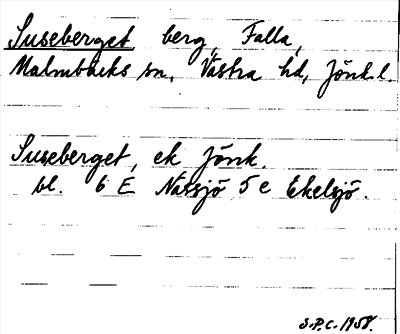 Suseberget berg, Falla,
Malmbäcks sn, Västra hd, Jönk.l.
Suseberget, ek Jönk.
bl. 6 E Nässjö 5 e Ekelsjö.
S.P.C. 1958.